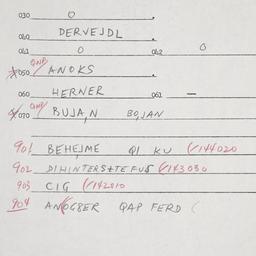 030 0
040 DERVEJDL
041 0 042 0
GNP
050 ANOKS
060 HERNER 061 —
GNP
070 BUJA,N BOJAN
901 BEHEJME QI KU (/144020
902 DIHINTERSITE FUS (/143030
903 CIG (/142010
904 QAP FERD (